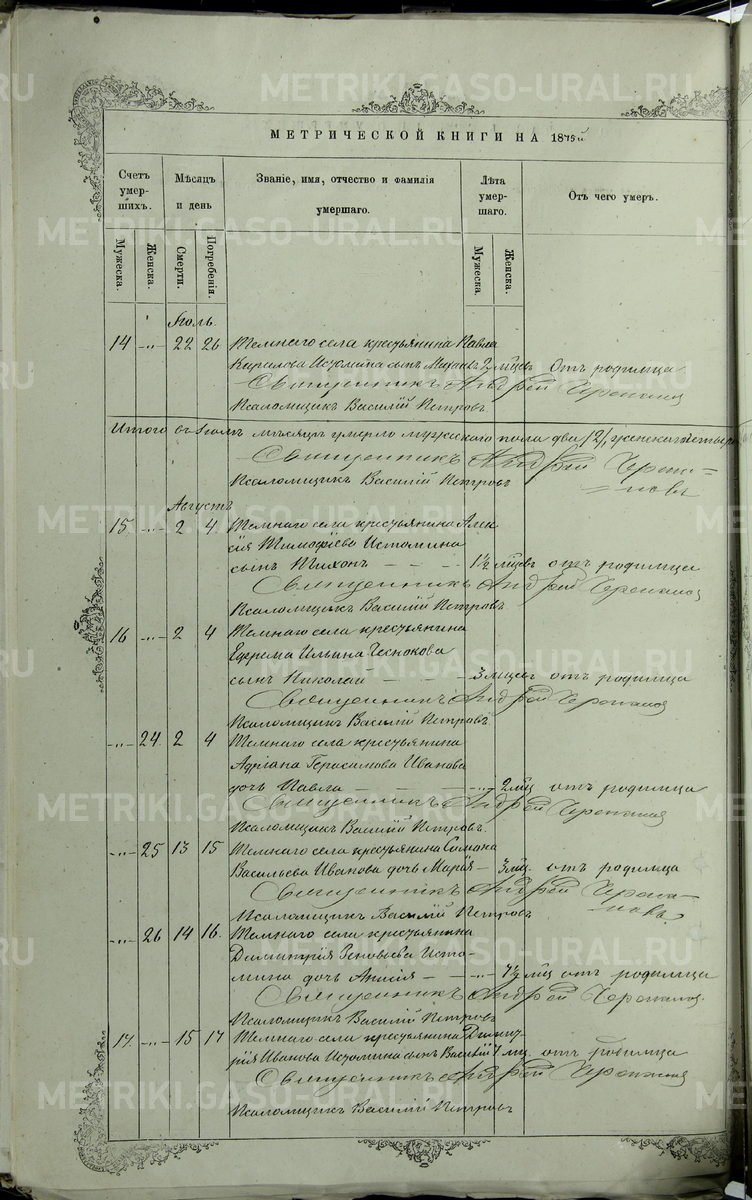 METRIKI.GASO-URAL.RU
МЕТРИЧЕСКОЙ КНИГИ НА 1875й
Счетъ умер-шихъ.
Мѣсяцъ и день
Званіе, имя, отчество и фамилія умершаго.
Лѣта умер-шаго.
Отъ чего умеръ.
Мужеска. Женска. Смерти. Погребенія. Мужеска. Женска.
Іюль.
14 -„- 22 26 Темнаго села крестьянина Павла
Кирилова Истомина сынъ Михаилъ 2 мцевъ Отъ родимца
Священникъ Андрей Черепановъ
Псаломщикъ Василій Петровъ.
Итого въ Іюлѣ мѣсяцѣ умерло мужескаго пола два /2/, женскаго четыре
Священникъ Андрей Черепа-
новъ
Псаломщикъ Василій Петровъ
Августъ
15 -„- 2 4 Темнаго села крестьянина Алек
сія Тимофіева Истомина
сынъ Тихонъ — — — 1½ мцевъ отъ родимца
Священникъ Андрей Черепановъ
Псаломщикъ Василій Петровъ
16 -„- 2 4 Темнаго села крестьянина
Ефрема Ильина Чеснокова
сынъ Николай — — — 3 мцевъ отъ родимца
Священникъ Андрей Черепановъ
Псаломщикъ Василій Петровъ.
-„- 24 2 4 Темнаго села крестьянина
Адріана Герасимова Иванова
дочь Павла — — — -„- 2 мц отъ родимца
Священникъ Андрей Черепановъ
Псаломщикъ Василій Петровъ.
-„- 25 13 15 Темнаго села крестьянина Симона
Васильева Иванова дочь Марія — 3 мц. отъ родимца
Священникъ Андрей Черепа-
новъ
Псаломщикъ Василій Петровъ
-„- 26 14 16. Темнаго села крестьянина
Димитрія Зеновьева Исто-
мина дочь Анисія — — -„- 7½ мц отъ родимца
Священникъ Андрей Черепановъ.
Псаломщикъ Василій Петровъ
17. -„- 15 17 Темнаго села крестьянина Димит
рія Иванова Истомина сынъ Василій 1 мц. отъ родимца
Священникъ Андрей Черепановъ
Псаломщикъ Василій Петровъ